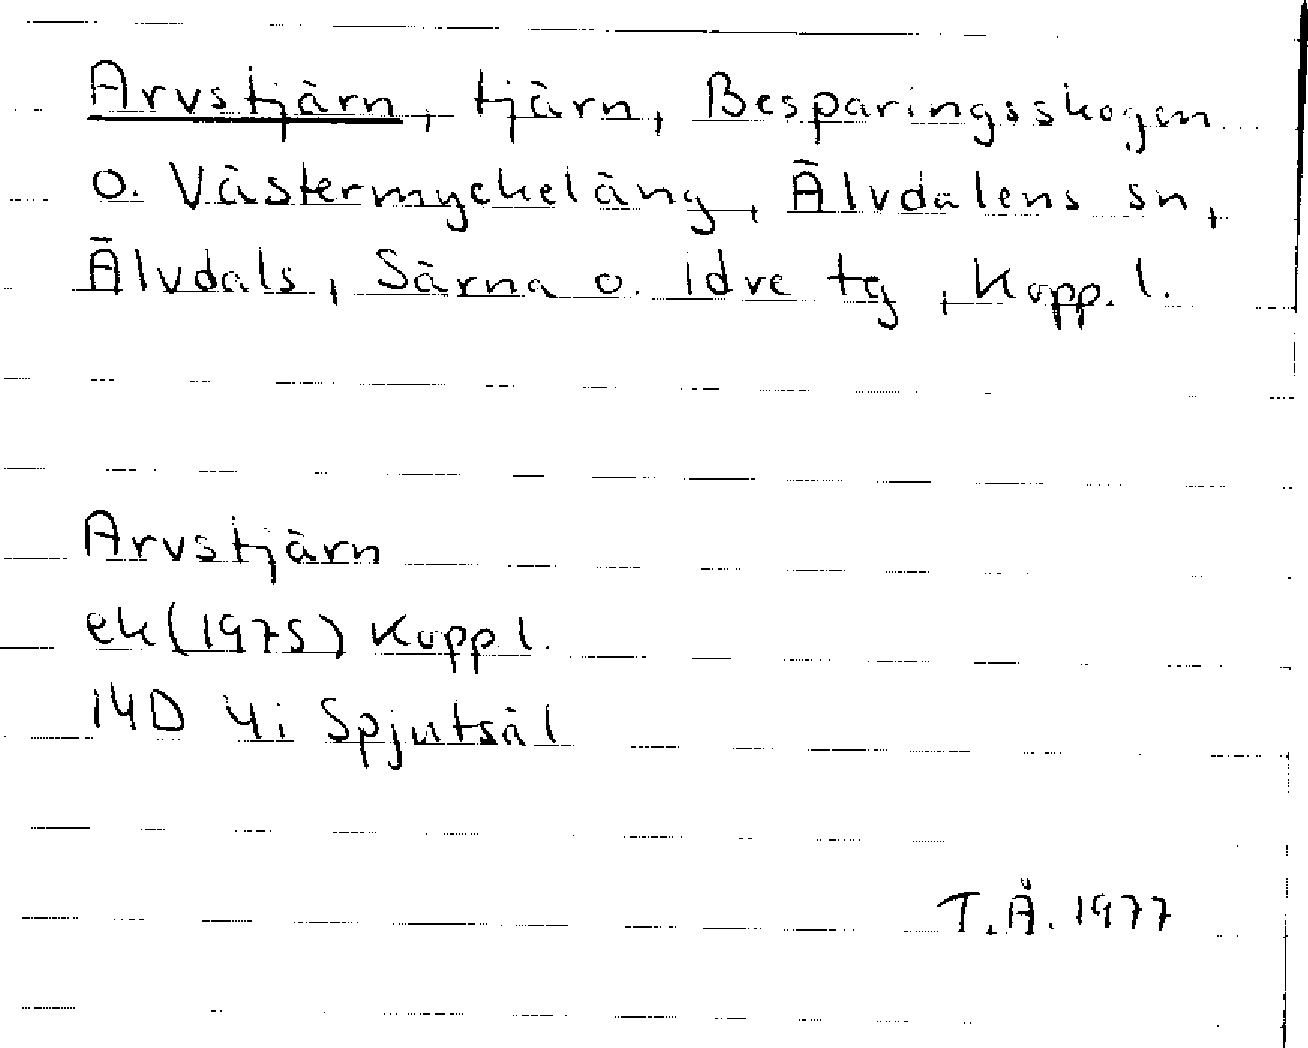 Arvstjärn, tjärn, Besparingsskogen
o. Västermyckeläng, Älvdalens sn,
Älvdals, Särna o. Idre tg, Kopp. l.
Arvstjärn
ek (1975) Kopp l.
14D 4i Spjutsäl
T.Å. 1977